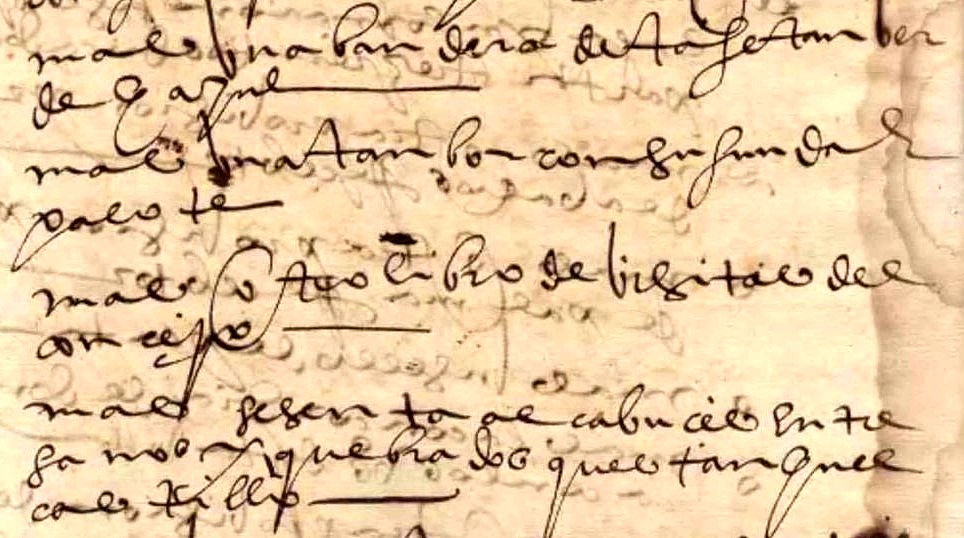 mas una bandera de tafetan ber
de y azul
mas un atanbor con su funda y
palote
mas otro libro de bisitas del
concejo
mas sesenta alcabuces ente
sanos y quebrados questan en el
castillo